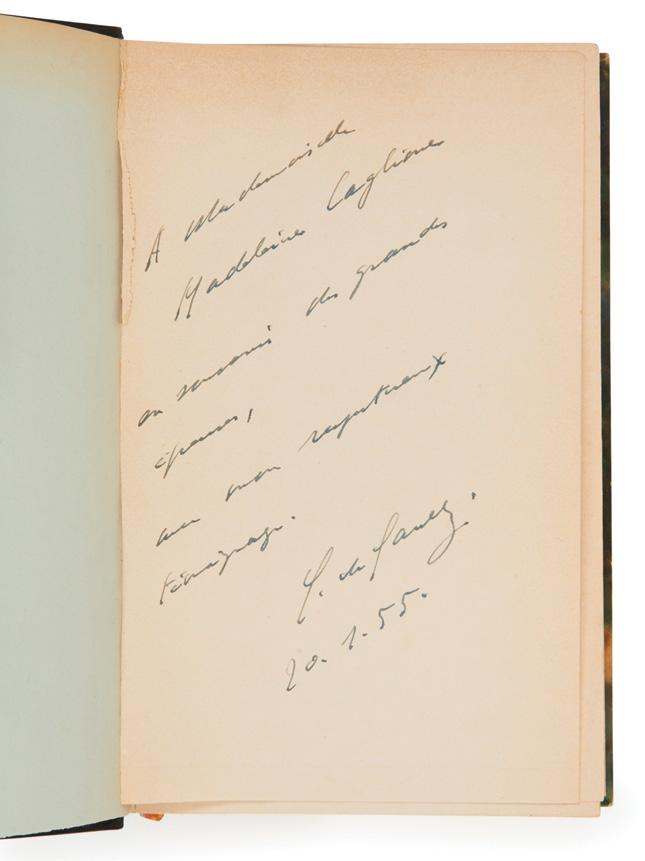 A Mademoiselle
Madeleine Caglione
en souvenir des grandes
épreuves,
avec mon respectueux
témoignage.
C. de Gaulle.
20.1.55.